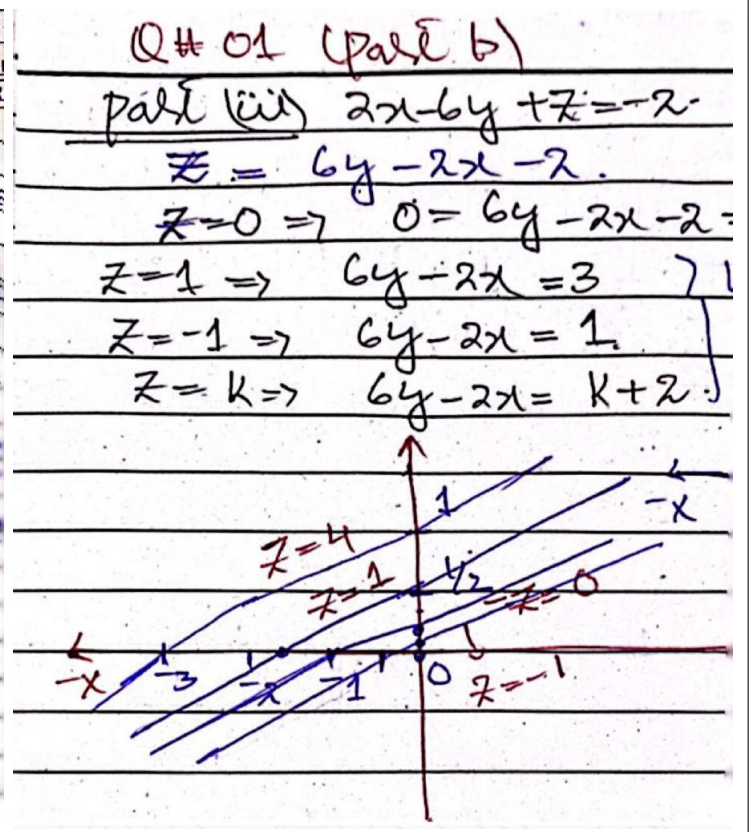 Q# 01 (part b)
part (iii) 2x-6y+z=-2.
z = 6y-2x-2.
z=0 => 0= 6y-2x-2=
z=1 => 6y-2x=3
z=-1 => 6y-2x=1.
z=k=> 6y-2x= k+2.
1
-x
z=4
z=1 1/2 z= 0
-x -3 -x -1 0 1 z=-1